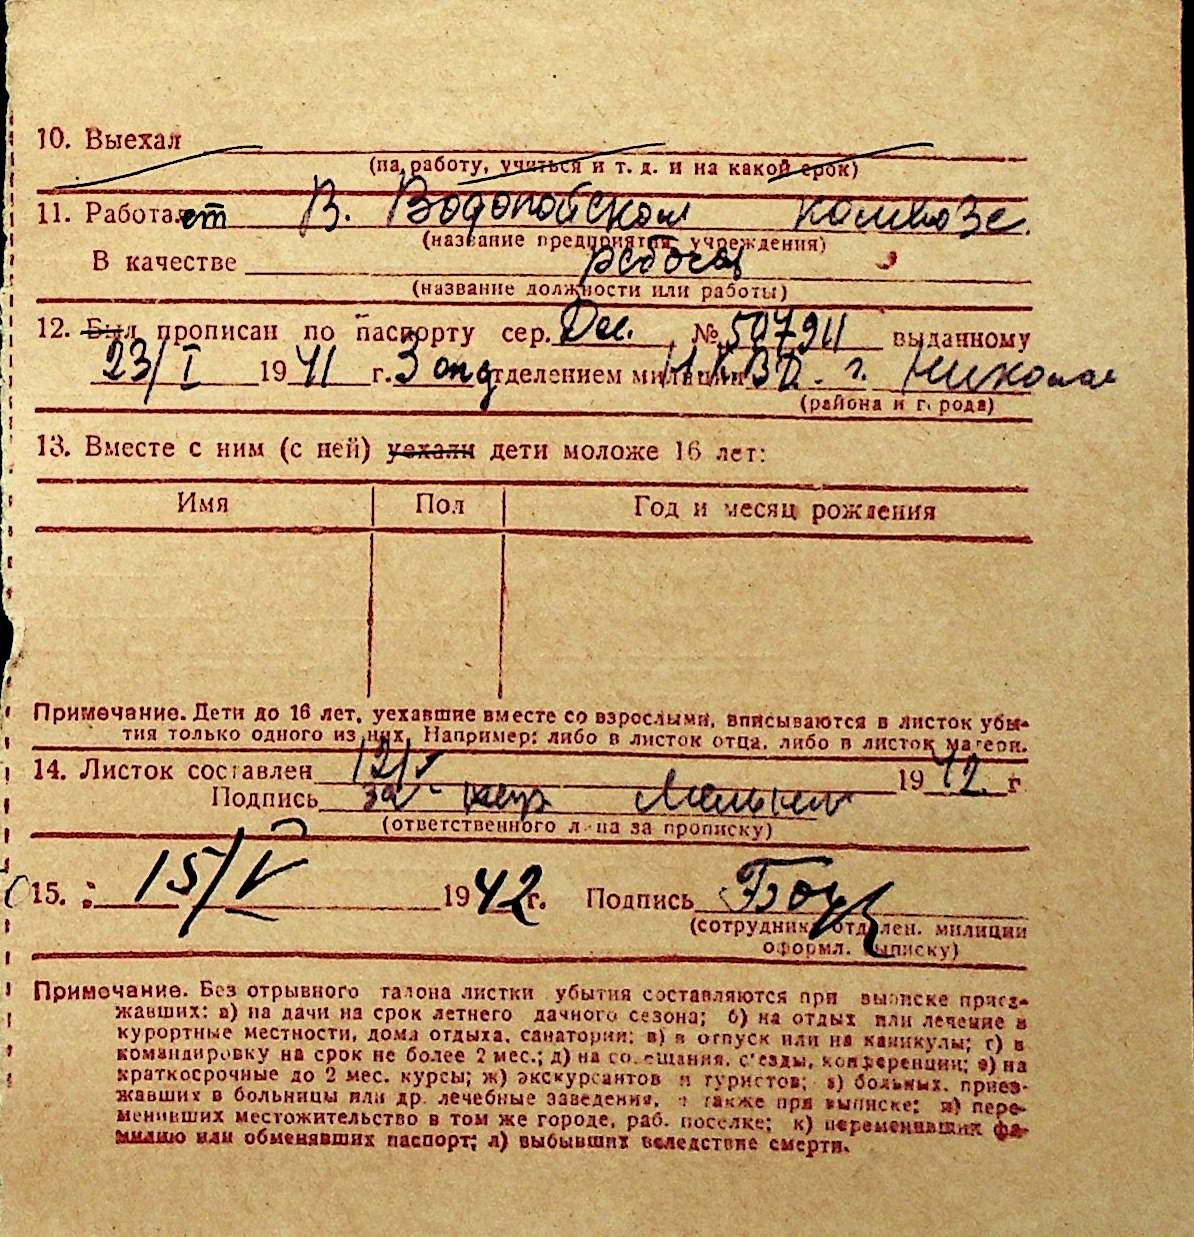 10. Выехал
(на работу, учиться и т. д. и на какой срок)
11. Работает В. Водопойском колхозе.
(название предприятия, учреждения)
В качестве рабочая
(название должности или работы)
12. Был прописан по паспорту сер. № 507911 выданному
23/I 1941 г. 3 отделением милиции Н.К.ВД. г. Николаев
(района и города)
13. Вместе с ним (с ней) уехали дети моложе 16 лет:
Имя Пол Год и месяц рождения
Примечание. Дети до 16 лет, уехавшие вместе со взрослыми, вписываются в листок убы-
тия только одного из них. Например: либо в листок отца, либо в листок матери.
14. Листок составлен 12/V 1942 г
Подпись за
(ответственного лица за прописку)
15. 15/V 1942 г. Подпись
(сотрудник отделен. милиции
оформл. выписку)
Примечание. Без отрывного талона листки убытия составляются при выписке приез-
жавших: а) на дачи на срок летнего дачного сезона; б) на отдых или лечение в
курортные местности, дома отдыха, санатории; в) в отпуск или на каникулы; г) в
командировку на срок не более 2 мес.; д) на совещания, с'езды, конференции; е) на
краткосрочные до 2 мес. курсы; ж) экскурсантов и туристов; з) больных, приез-
жавших в больницы или др. лечебные заведения, а также при выписке; и) пере-
менивших местожительство в том же городе, раб. поселке; к) переменивших фа-
милию или обменявших паспорт; л) выбывших вследствие смерти.